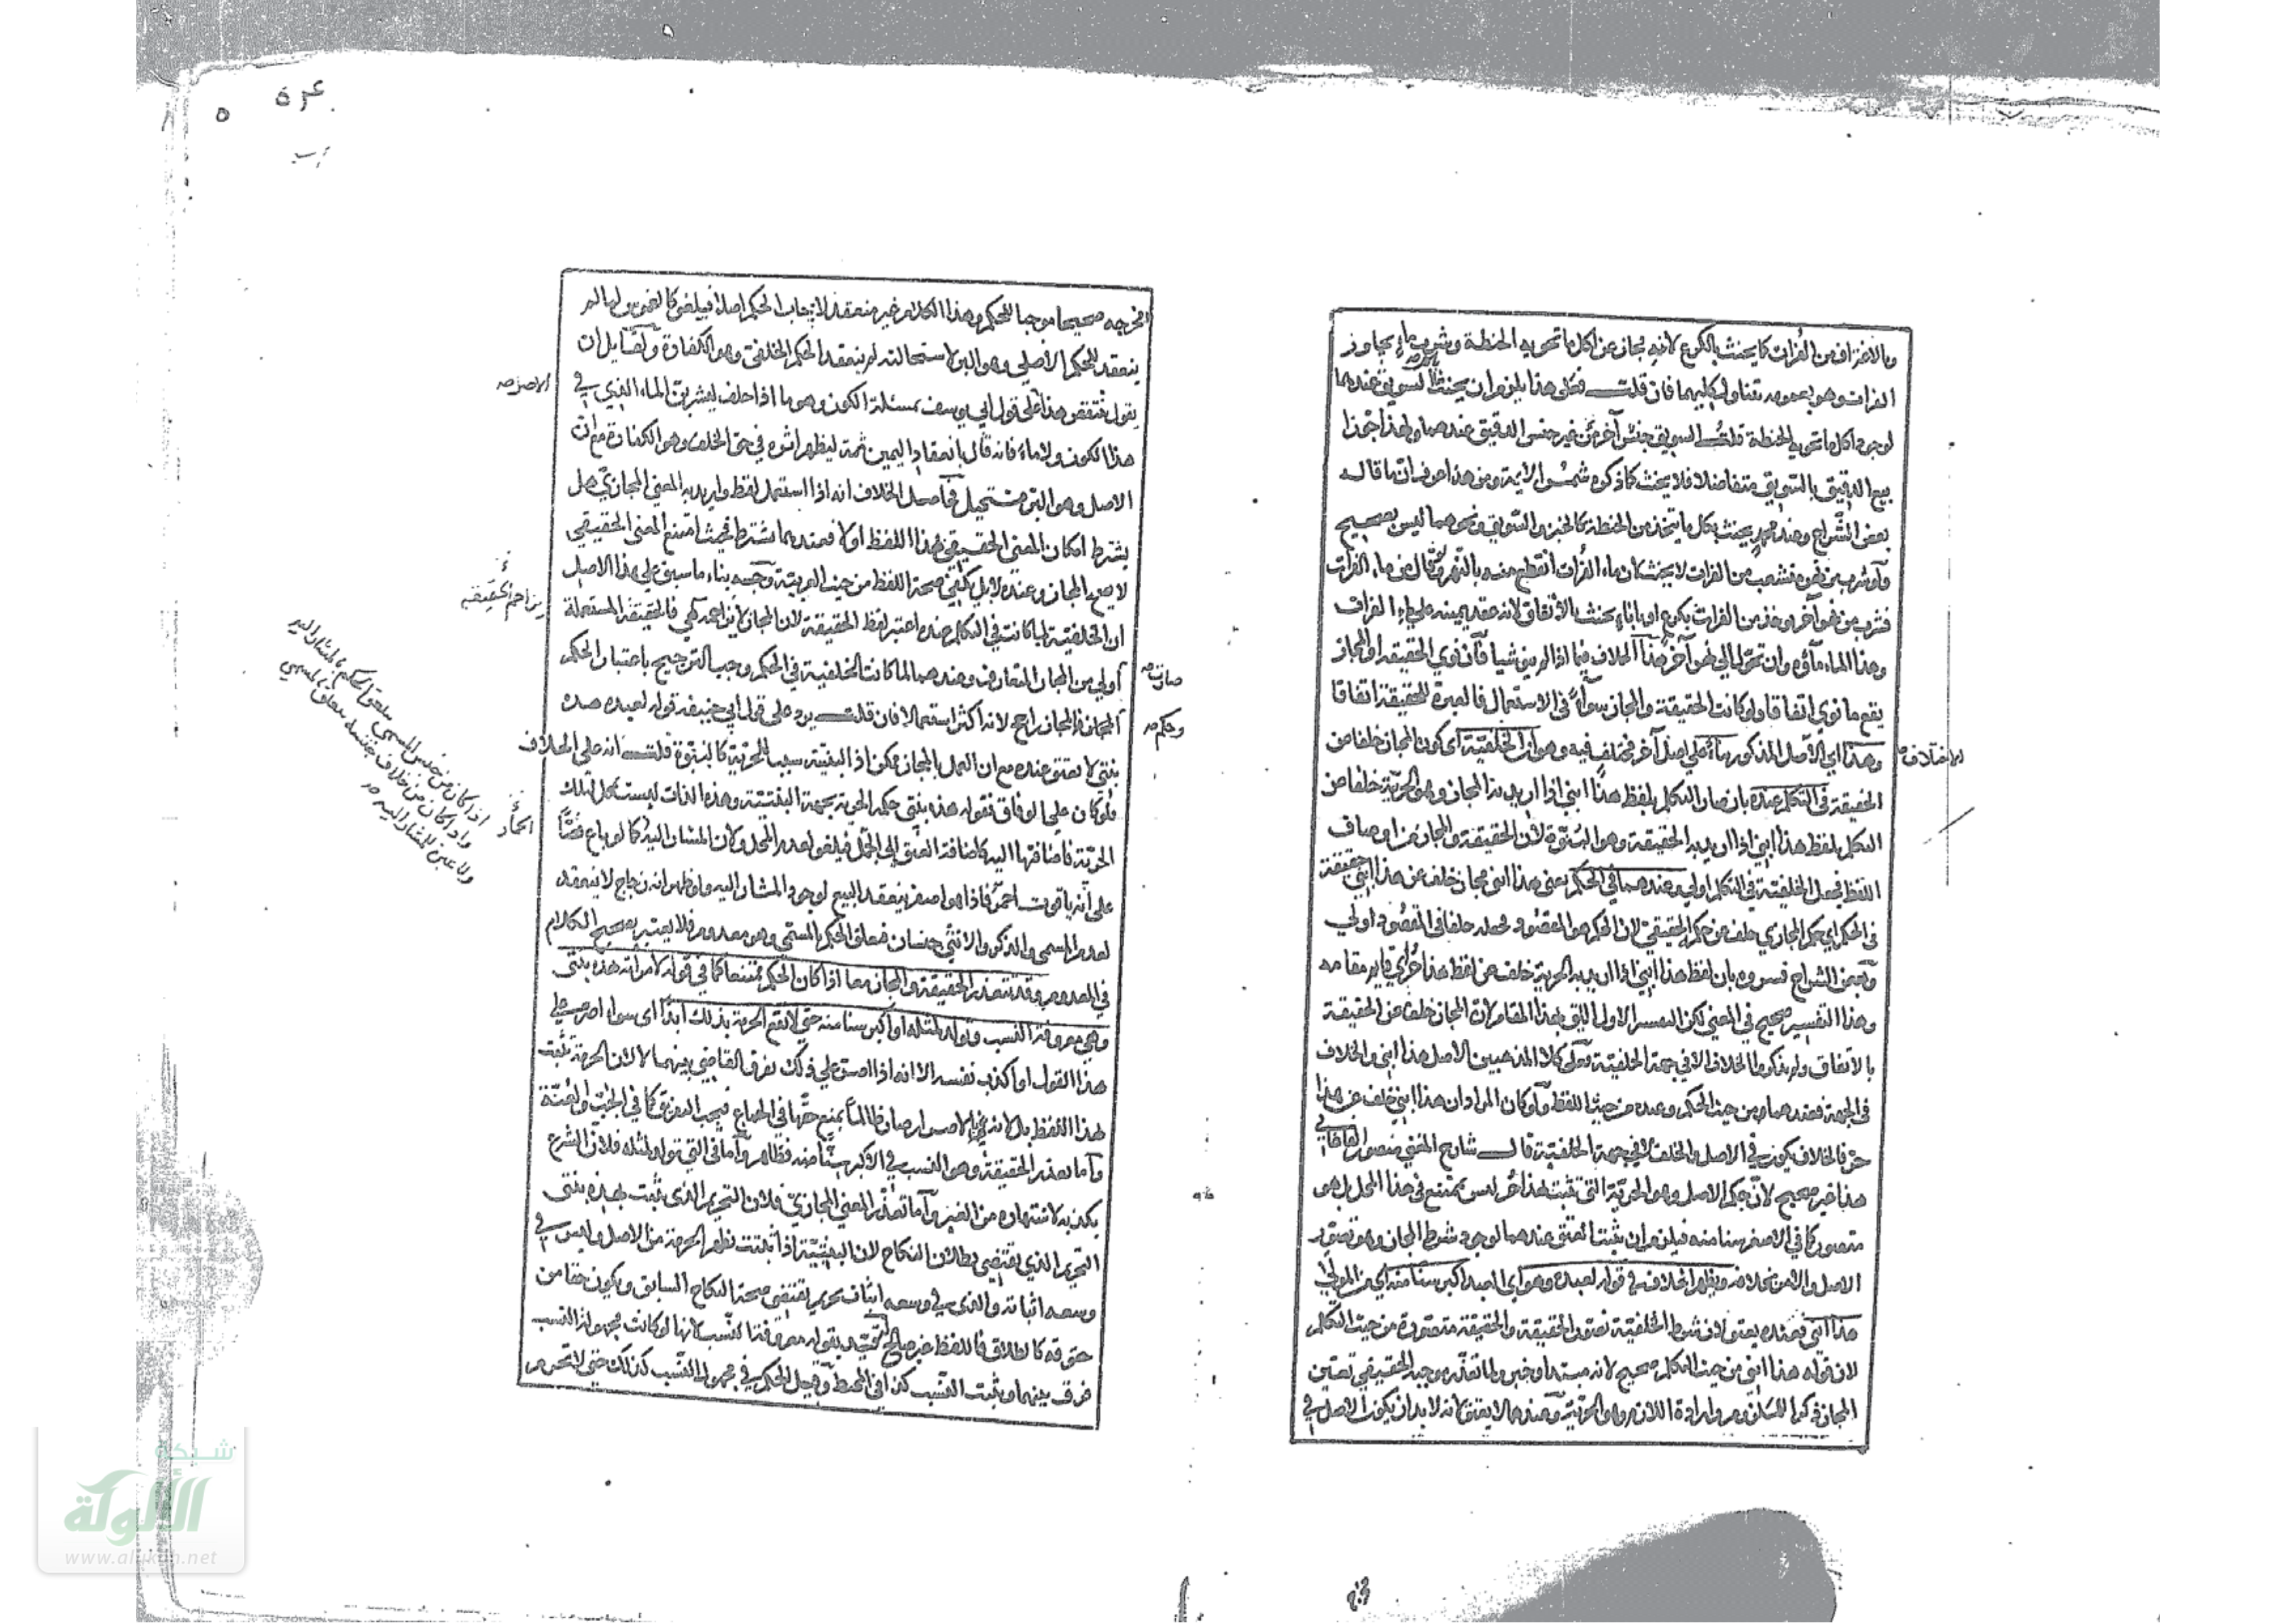 وبالاغتراف من الفرات كما يحنث بالكرع لانه مجاز عن اكل ما تحويه الحنطة وشرب ماء يجاوز
الفرات وهو بعمومه تناول كليهما فان قلت فعلى هذا يلزم ان يحنث بالسويق عندهما
لوجود اكل ما تحويه الحنطة قلت السويق جنس آخر من غير جنس الدقيق عندهما ولهذا جوزا
بيع الدقيق بالسويق متفاضلا فلا يحنث كما ذكره شمس الايمة ومن هذا عرف ان ما قاله
بعض الشراح وعند محمد يحنث بكل ما يتخذ من الحنطة كالخبز والسويق ونحوهما ليس بصحيح
ولو شرب من نهر منشعب من الفرات لا يحنث لان ماء الفرات انقطع منه بالنهر ولو قال من ماء الفرات
فشرب من نهر آخر يوخذ من الفرات بكرع او باناء يحنث بالاتفاق لانه عقد يمينه على ماء الفرات
وهذا الماء ماؤه وان تحول الى نهر آخر هذا الخلاف فيما اذا لم ينو شيا فان نوى الحقيقة او المجاز
يقع ما نوى اتفاقا ولو كانت الحقيقة والمجاز سواء في الاستعمال فالعبرة للحقيقة اتفاقا
وهذا اي الاصل المذكور بناء على اصل آخر مختلف فيه وهو ان الخلفية اي كون المجاز خلفا عن
الاختلاف صح
الحقيقة في التكلم عنده بان صار التكلم بلفظ هذا ابني اذا اريد به المجاز وهو الحرية خلفا عن
التكلم بلفظ هذا ابني اذا اريد به الحقيقة وهو البنوة لان الحقيقة والمجاز من اوصاف
اللفظ فجعل الخلفية في التكلم اولى وعندهما في الحكم يعني هذا ابني مجاز خلف عن هذا ابني حقيقة
في الحكم اي حكم المجازي خلف عن حكم الحقيقي لان الحكم هو المقصود فجعله خلفا في المقصود اولى
وبعض الشراح فسروه بان لفظ هذا ابني اذا اريد به الحرية خلف عن لفظ هذا حر اي قايم مقامه
وهذا التفسير صحيح في المعنى لكن التفسير الاول اليق بهذا المقام لان المجاز خلف عن الحقيقة
بالاتفاق ولم يذكروا الخلاف الا في جهة الخلفية فعلى كلا المذهبين الاصل هذا ابني والخلاف
في الجهة فعندهما من حيث الحكم وعنده من حيث اللفظ ولو كان المراد ان هذا ابني خلف عن هذا
حر فالخلاف يكون في الاصل والخلف لا في جهة الخلفية قال شارح المغني منصور القاآني
هذا غير صحيح لان حكم الاصل وهو الحرية التي تثبت بهذا حر ليس بممتنع في هذا المحل بل هو
متصور كما في الاصغر سنا منه فيلزم ان يثبت العتق عندهما لوجود شرط المجاز وهو تصور
الاصل والامر بخلافه ويظهر الخلاف في قوله لعبده وهو اي العبد اكبر سنا منه اي من المولى
هذا ابني فعنده يعتق لان شرط الخلفية تصور الحقيقة والحقيقة متصورة من حيث التكلم
لان قوله هذا ابني من حيث التكلم صحيح لانه مبتدا وخبر ولما تعذر موجبه الحقيقي تعين
المجاز ذكرا للملزوم وارادة اللازم وهو الحرية وعندهما لا يعتق لانه لا بد ان يكون الاصل في
مخرجه صحيحا موجبا للحكم وهذا الكلام غير منعقد لايجاب الحكم اصلا فيلغو كالغموس لما لم
ينعقد للحكم الاصلي وهو البر لاستحالته لم ينعقد لحكم الخلفي وهو الكفارة ولقايل ان
يقول ينتقض هذا على قول ابي يوسف بمسئلة الكوز وهو ما اذا حلف ليشربن الماء الذي في
هذا الكوز ولا ماء فانه قال بانعقاد اليمين ثمة ليظهر اثره في حق الخلف وهو الكفارة مع ان
الاصل وهو البر مستحيل فحاصل الخلاف انه اذا استعمل لفظ واريد به المعنى المجازي هل
يشترط امكان المعنى الحقيقي بهذا اللفظ او لا فعندهما يشترط فحيث امتنع المعنى الحقيقي
لا يصح المجاز وعنده لا بل يكفي صحة اللفظ من حيث العربية وجه بناء ما سبق على هذا الاصل
ان الخلفية لما كانت في التكلم عنده اعتبر لفظ الحقيقة لان المجاز لا يزاحمه فالحقيقة المستعملة
يزاحم الحقيقة
اولى من المجاز المتعارف وعندهما لما كانت الخلفية في الحكم وجب الترجيح باعتبار الحكم
صارت صح
المجاز فالمجاز راجح لانه اكثر استعمالا فان قلت يرد على قول ابي حنيفة قوله لعبده هذه
وحكم صح
بنتي لا يعتق عنده مع ان العمل بالمجاز ممكن اذ البنتية سبب الحرية كالبنوة قلت انه على الخلاف
ولو كان على الوفاق فقوله هذه بنتي حكمه الحرية بجهة البنتية وهذه الذات ليست بمحل لتلك
الحرية فاضافتها اليه كاضافة العتق الى فيلغو لعدم المحل ولان المشار اليه كما لو باع فصا
اذا كان من جنس المسمى يتعلق الحكم بالمشار اليه
واذا كان من خلاف جنسه يتعلق بالمسمى
على انه ياقوت احمر فاذا هو اصفر ينعقد البيع لوجود المشار اليه ولو ظهر انه زجاج لا ينعقد
لعدم المسمى والذكر والانثى جنسان فيعلق الحكم بالمسمى وهو معدوم فلا يعتبر تصحيح الكلام
في المعدوم وقد تتعذر الحقيقة والمجاز معا اذا كان الحكم ممتنعا كما في قوله لامراته هذه بنتي
وهي معروفة النسب وتولد لمثله او اكبر سنا منه حتى لا تقع الحرمة بذلك ابدا اي سواء اصر على
هذا القول او اكذب نفسه الا انه اذا اصر على ذلك يفرق القاضي بينهما لا لان الحرمة تثبت
بهذا اللفظ بل لانه بالاصرار صار ظالما يمنع حقها في الجماع فيجب التفريق كما في الجب والعنة
واما تعذر الحقيقة وهو النسب في الاكبر سنا منه فظاهر واما في التي تولد لمثله فلان الشرع
يكذبه لاشتهاره من الغير واما تعذر المعنى المجازي فلان التحريم الذي يثبت بهذه بنتي
التحريم الذي يقتضي بطلان النكاح لان البنتية اذا ثبتت تظهر الحرمة من الاصل وليس في
وسعه اثباته والذي في وسعه اثبات تحريم يقتضي صحة النكاح السابق ويكون حقا من
حقوقه كالطلاق فاللفظ غير صالح قيد بقوله معروفة النسب لانها لو كانت مجهولة النسب
فرق بينهما ويثبت النسب كذا في المحيط وقيل الحكم في مجهولة النسب كذلك حتى لا تحرم